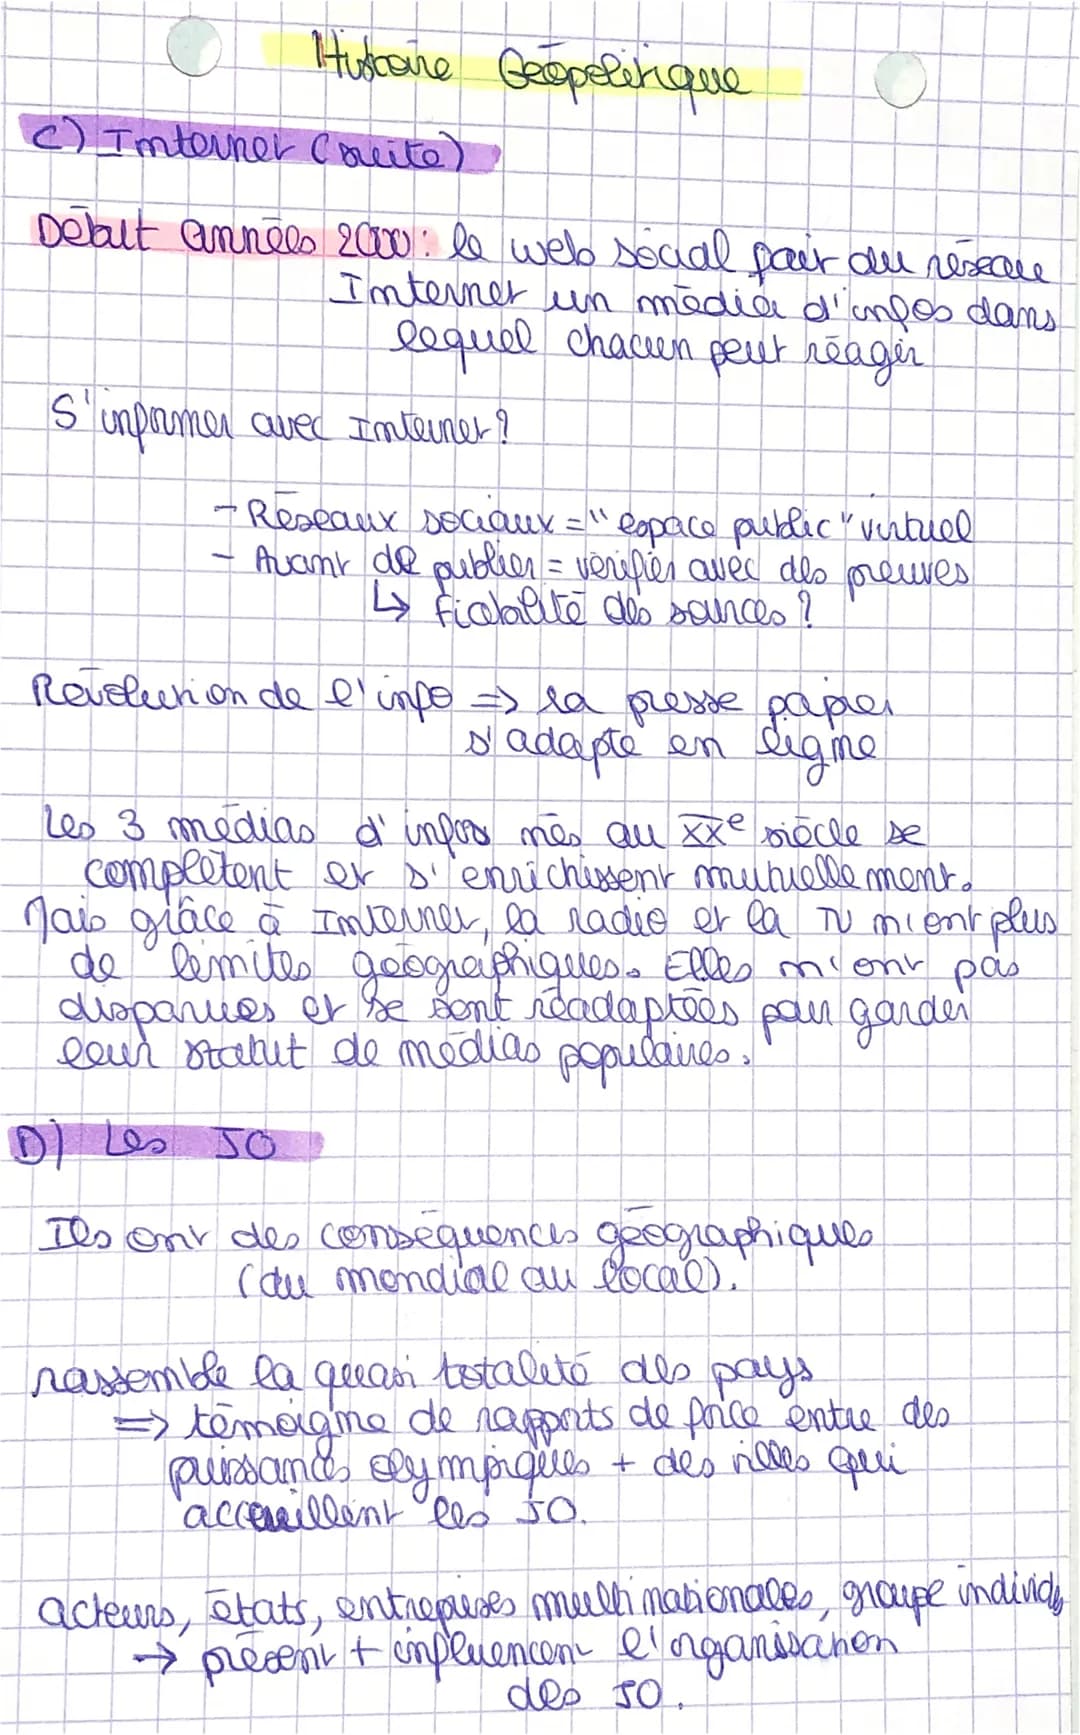 Histoire Géopolitique
C) Internet (suite)
Début années 2000: le web social fait du réseau
Internet un média d'infos dans
lequel chacun peut réagir
S'informer avec Internet?
- Réseaux sociaux = "espace public" virtuel
- Avant de publier = vérifier avec des preuves
↳ fiabilité des sources?
Révolution de l'info => la presse papier
s'adapte en ligne
Les 3 médias d'infos nés au XXe siècle se
complètent et s'enrichissent mutuellement.
Mais grâce à Internet, la radio et la TV n'ont plus
de limites géographiques. Elles n'ont pas
disparues et se sont réadaptées pour garder
leur statut de médias populaires.
D) Les JO
Ils ont des conséquences géographiques
(du mondial au local).
rassemble la quasi totalité des pays
=> témoigne de rapports de force entre des
puissances olympiques + des villes qui
accueillent les JO.
acteurs, états, entreprises multinationales, groupe individu
→ présent + influencent l'organisation
des JO.